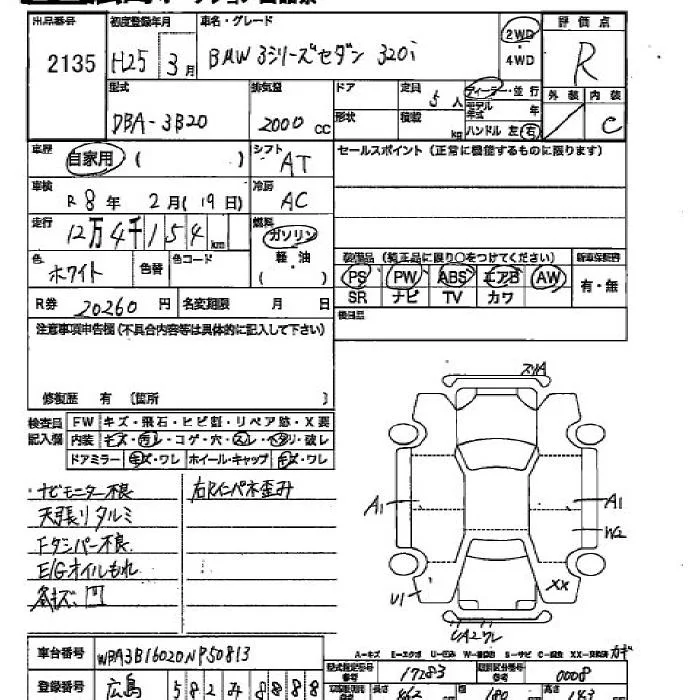 出品番号 初度登録年月 車名・グレード 評価点
2135 H25年 3月 BMW 3シリーズセダン 320i 2WD・4WD R
型式 排気量 ドア 定員 ディーラー・並行 外装 内装
DBA-3B20 2000cc 5人 モデル年式 年 / C
形状 積載 kg ハンドル 左 右
車歴 自家用 ( ) シフト AT セールスポイント (正常に機能するものに限ります)
車検 R8年 2月(19日) 冷房 AC
走行 12万4千154km 燃料 ガソリン
軽・油 ( ) 装備品 (純正品に限り○をつけてください) 新車保証書
色 ホワイト 色替 色コード PS PW ABS エアB AW 有・無
SR ナビ TV カワ
R券 20260円 名変期限 月 日 後日品
注意事項申告欄 (不具合内容等は具体的に記入して下さい)
修復歴 有 [箇所 ]
検査員記入欄 FW キズ・飛石・ヒビ割・リペア跡・X要
内装 キズ・汚レ・コゲ・穴・スレ・ヘタリ・破レ
ドアミラー キズ・ワレ ホイール・キャップ キズ・ワレ
ナビモニター不良 右Rインパネ歪み
天張りタルミ
Fダンパー不良
E/Gオイルもれ
スリA
A1 A1
W2
U1 XX
UA2ワレ
車台番号 WBA3B16020NP50813
A-キズ E-エクボ U-凹み W-補修跡 S-サビ C-腐食 XX-交換済
型式指定番号 17283 類別区分番号 0008
登録番号 広島 582 す 8888
長さ 462 幅 180 高さ 143